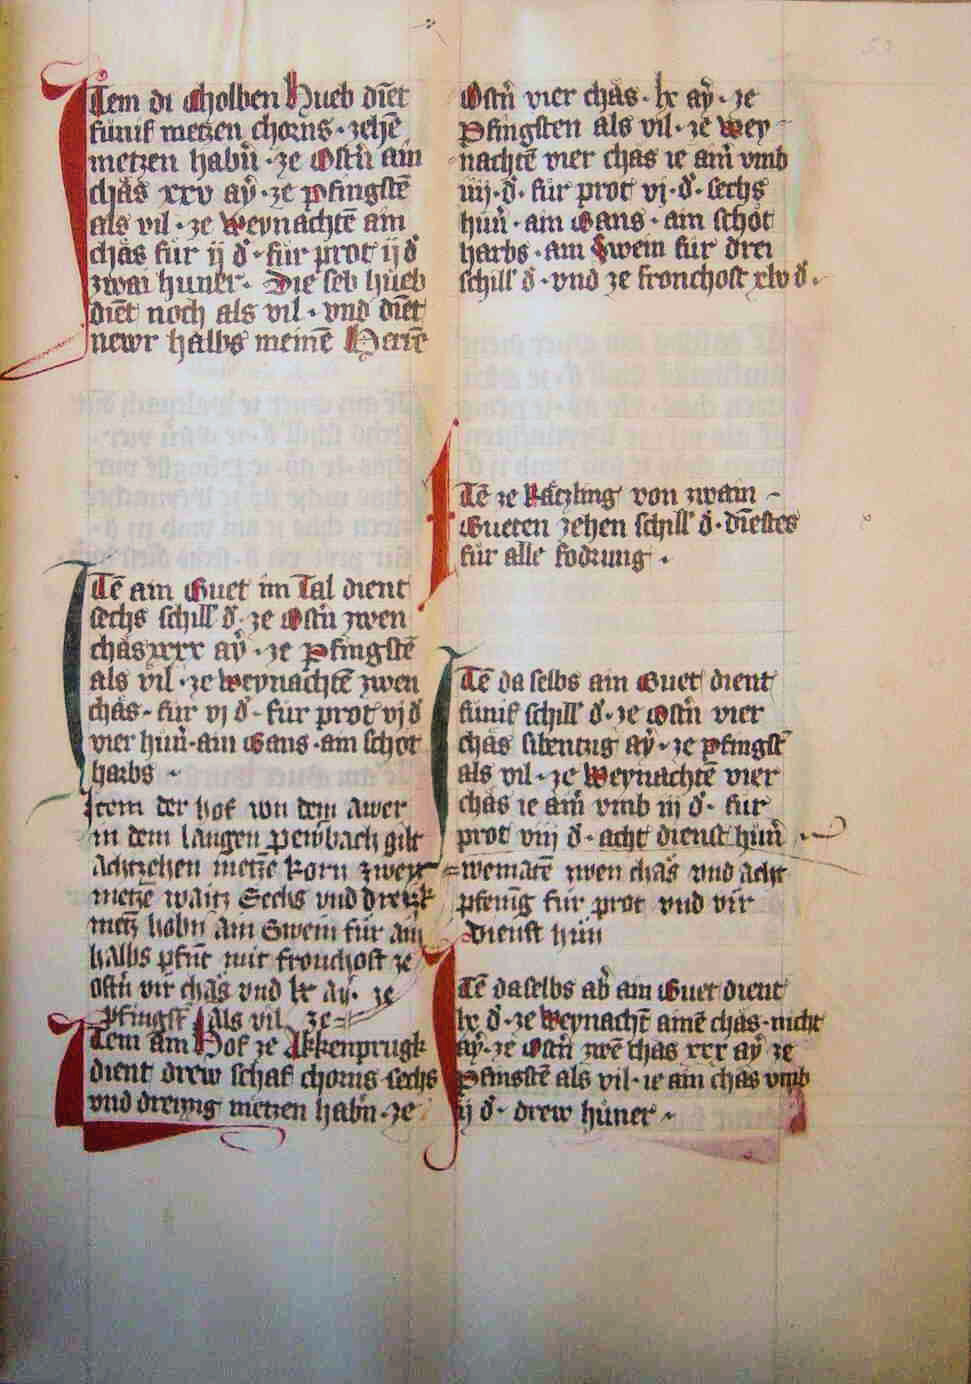 Item di Cholben Hueb diēt
fünif metzen chorns · zehē
metzen habn̄ · ze Ostn̄ ain
chäs xxv aẏ · ze Pfingstē
als vil · ze Weynachtē ain
chäs für ij d̄ · für prot ij d̄
zwai hüner · Die selb hueb
diēt noch als vil · vnd diēt
newr halbs meinē Herrē
Itē ain Guet im Tal dient
sechs schill d̄ · ze Ostn̄ zwen
chäs xxx aẏ · ze Pfingstē
als vil · ze Weynachtē zwen
chäs · für vj d̄ · für prot vj d̄
vier hün̄ · ain Gans · ain schot
harbs ·
Item der hof von dem Awer
in dem langen pewbach gilt
achtzehen metzē korn zwen
metzē waitz Sechs vnd dreizk
metz̄ habn̄ ain Swein für ain
halbs pfūt mit fronchost ze
ostn̄ vir chäs vnd lx aẏ · ze
pfingst̄ Als vil ze =
Item ain Hof ze Akkenprugk
dient drew schaf chorns · sechs
vnd dreizzig metzen habn̄ · ze
Ostn̄ vier chäs · lx aẏ · ze
Pfingsten als vil · ze Wey =
nachtē vier chäs ie ain̄ vmb
iiij · d̄ · für prot vj · d̄ · sechs
hün̄ · ain Gans · ain schot
harbs · ain Swein für drei
schill d̄ · vnd ze fronchost xlv d̄ ·
Itē ze Rätzling von zwain
Gueten zehen schill d̄ · diēstes
für alle fodrung ·
Itē da selbs ain Guet dient
fünif schill d̄ · ze Ostn̄ vier
chäs sibentzg aẏ · ze pfingst̄
als vil · ze Weynachtē vier
chäs ie ain̄ vmb iij d̄ · für
prot viij d̄ · acht dienst hün̄ ·
= weinatē zwen chäs vnd acht
pfenīg für prot vnd vir
dienst hün
Itē daselbs ab̄ ain Guet dient
lx d̄ · ze Weynacht̄ ainē chäs · nicht
aẏ · ze Ostn̄ zwē chäs xxx aẏ ze
Pfingstē als vil · ie ain chäs vmb
ij d̄ · drew hüner ·